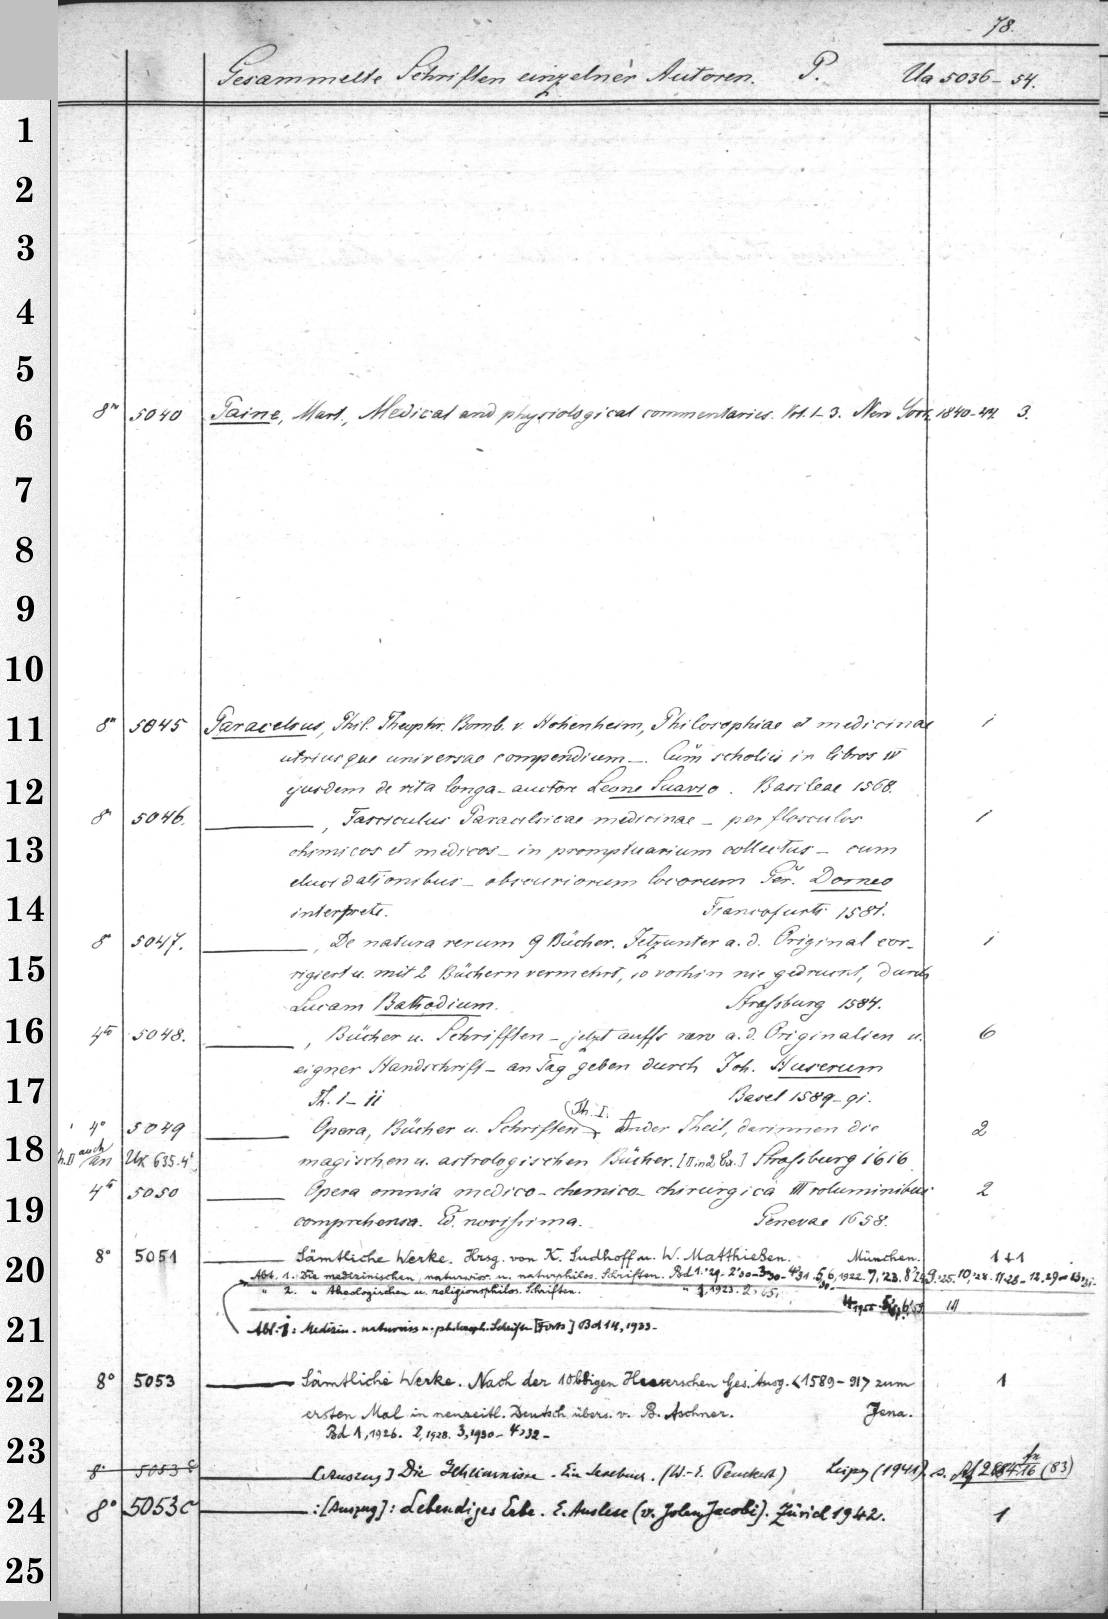 78.
Gesammelte Schriften einzelner Autoren. P. Ua 5036-54.
1
2
3
4
5
8° 5040 Paine, Mart., Medical and physiological commentaries. Vol. 1-3. New York, 1840-44. 3.
6
7
8
9
10
11
8° 5045 Paracelsus, Phil. Theophr. Bomb. v. Hohenheim, Philosophiae et medicinae 1
utriusque universae compendium _. Cum scholiis in libros IV
12
ejusdem de vita longa - auctore Leone Suavio. Basileae 1568.
8° 5046. ———, Fasciculus Paracelsicae medicinae - per flosculos 1
13
chimicos et medicos - in promptuarium collectus - cum
elucidationibus - obscuriorum locorum Ger. Dorneo
14
interprete. Francofurti 1581.
8° 5047. ———, De natura rerum 9 Bücher. Jetzunter a. d. Original cor- 1
15
rigiert u. mit 2 Büchern vermehrt, so vorhin nie gedruckt, durch
Lucam Bathodium. Strassburg 1584.
16
4to 5048. ———, Bücher u. Schrifften - jetzt auffs new a. d. Originalien u. 6
eigner Handschrift - an Tag geben durch Joh. Huserum
17
Th. I-II Basel 1589-91.
4° 5049 ——— Opera, Bücher u. Schriften (Th. I.) - Ander Theil, darinnen die 2
18
Th. II auch an Ux 635. 4° magischen u. astrologischen Bücher. [II in 2 Ex.] Strassburg 1616
4to 5050 ——— Opera omnia medico-chemico-chirurgica III voluminibus 2
19
comprehensa. Ed. novissima. Genevae 1658.
8° 5051 ——— Sämtliche Werke. Hrsg. von K. Sudhoff u. W. Matthießen. München. 1+1
20
Abt. 1.: Die medizinischen, naturwiss. u. naturphilos. Schriften. Bd 1.'29- 2'30-3'30- 4'31 5,6,1922. 7,'23. 8'24 9.'25. 10,'28. 11.28- 12.29- 13'31.
" 2. " theologischen u. religionsphilos. Schriften. " 1,1923. 2.'65.
21
Abt. I: Medizin. naturwiss. u. philosoph. Schriften [Forts] Bd 14, 1933-
22
8° 5053 ——— Sämtliche Werke. Nach der 10bdigen Huserschen Ges. Ausg. <1589-91> zum 1
ersten Mal in neuzeitl. Deutsch übers. v. B. Aschner. Jena.
23
Bd 1, 1926. 2, 1928. 3, 1930- 4,32-
8° 5053 ——— [Auszug] Die Geheimnisse. Ein Lesebuch. (W.-E. Peuckert) Leipz (1941). s. (83)
24
8° 5053c ——— : [Auszug]: Lebendiges Erbe. E. Auslese (v. Jolan Jacobi). Zürich 1942. 1
25